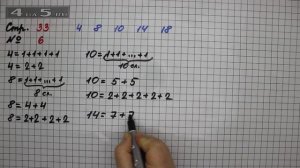 4 á 5 .
Стр. 33 4 8 10 14 18
№ 6
4=1+1+1+1 10=1+1+...+1
10 сл.
4=2+2
8=1+1+...+1
8 сл. 10 = 5+5
8=4+4 10=2+2+2+2+2
8=2+2+2+2 14=7+7